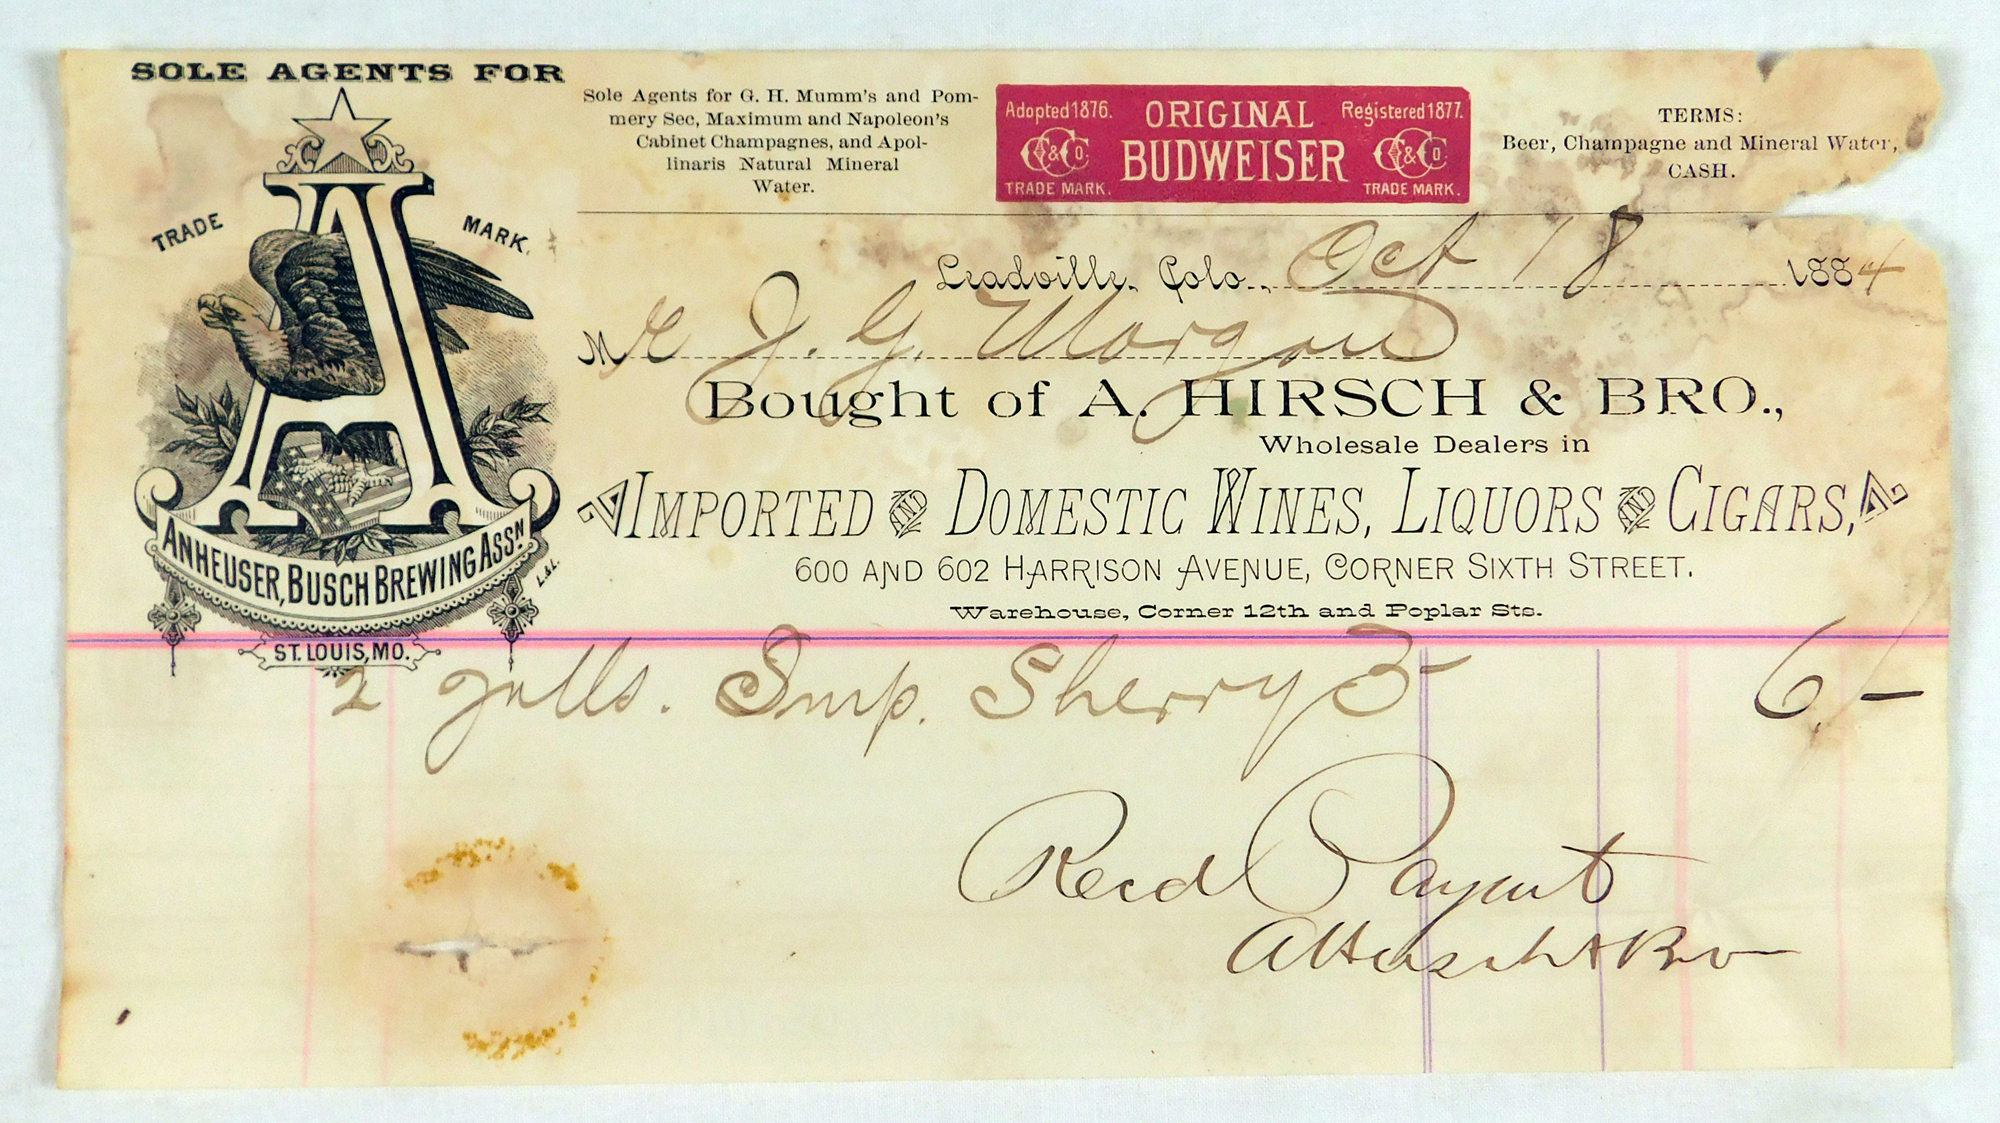 SOLE AGENTS FOR
TRADE MARK.
ANHEUSER, BUSCH BREWING ASSN
L.&L.
ST. LOUIS, MO.
Sole Agents for G. H. Mumm's and Pom-
mery Sec, Maximum and Napoleon's
Cabinet Champagnes, and Apol-
linaris Natural Mineral
Water.
Adopted 1876. ORIGINAL Registered 1877.
C.C&Co. BUDWEISER C.C&Co.
TRADE MARK. TRADE MARK.
TERMS:
Beer, Champagne and Mineral Water,
CASH.
Leadville, Colo., Oct 18 1884
Mr J. G. Morgan
Bought of A. HIRSCH & BRO.,
Wholesale Dealers in
IMPORTED AND DOMESTIC WINES, LIQUORS AND CIGARS,
600 AND 602 HARRISON AVENUE, CORNER SIXTH STREET.
Warehouse, Corner 12th and Poplar Sts.
2 galls. Imp. Sherry 3- 6/-
Recd Paymt
A Hirsch & Bro